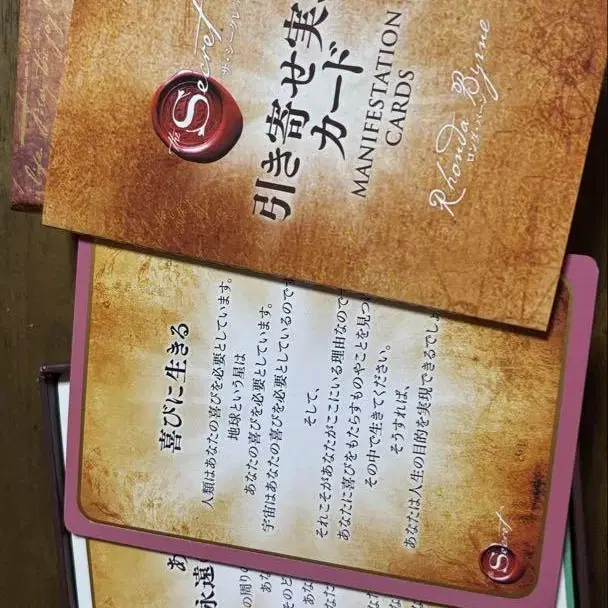 The Secret
ザ・シークレット
引き寄せ実
カード
MANIFESTATION
CARDS
Rhonda Byrne
ロンダ・バーン
喜びに生きる
人類はあなたの喜びを必要としています。
地球という星は
あなたの喜びを必要としています。
宇宙はあなたの喜びを必要としているのです
そして、
それこそがあなたがここにいる理由なので
あなたに喜びをもたらすものやことを見つ
その中で生きてください。
そうすれば、
あなたは人生の目的を実現できるでしょ
The Secret
あ
永遠
の周りの
あな
そのど
あな